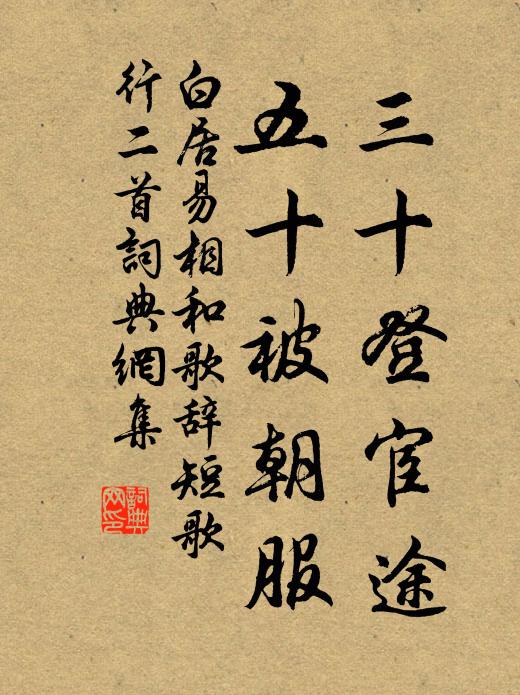 三十登宦途
五十被朝服
白居易相和歌辞短歌
行二首詞典網集
詞典
网印